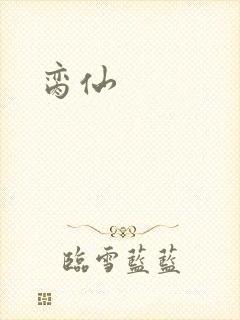 脔仙
臨雪藍藍